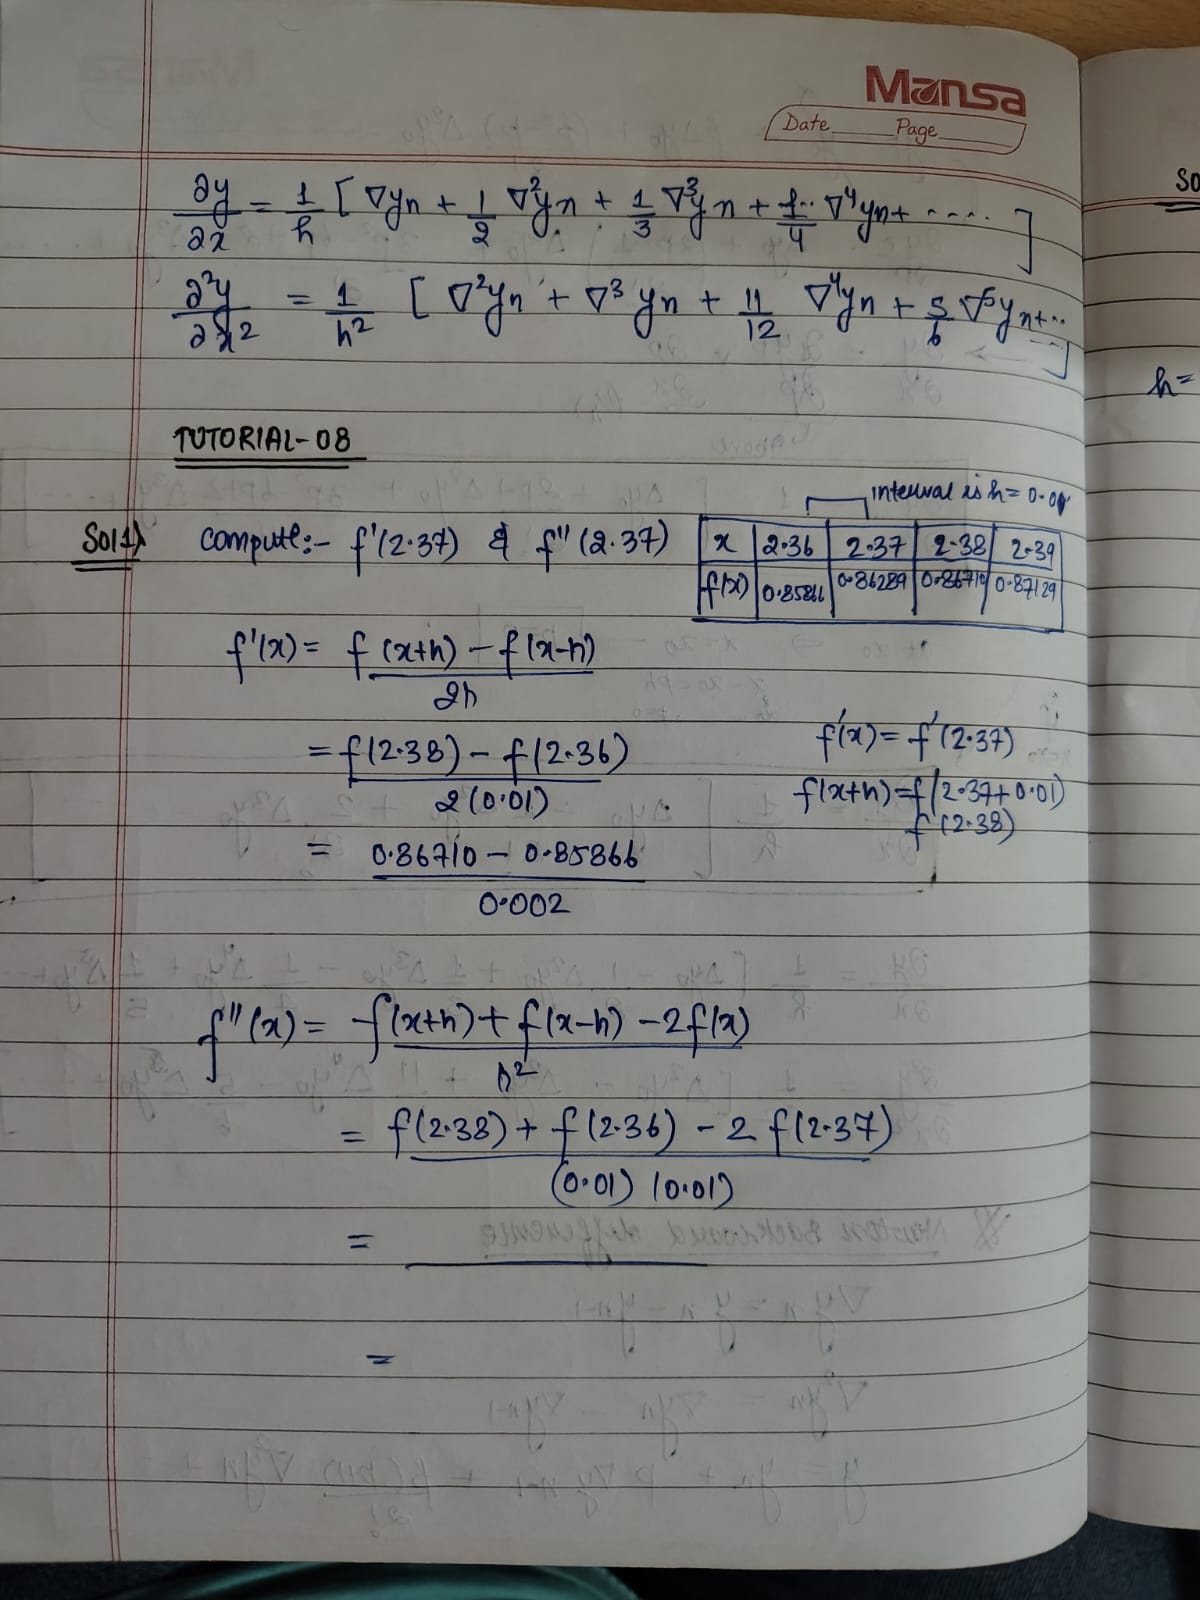 Mansa
Date Page
∂y/∂x = 1/h [ ∇yn + 1/2 ∇²yn + 1/3 ∇³yn + 1/4 ∇⁴yn + ..... ]
∂²y/∂x² = 1/h² [ ∇²yn + ∇³yn + 11/12 ∇⁴yn + 5/6 ∇⁵yn+..... ]
h=
TUTORIAL-08
interval is h = 0.01
Sol 1) compute:- f'(2.37) & f"(2.37)
x 2.36 2.37 2.38 2.39
f(x) 0.85866 0.86289 0.86710 0.87129
f'(x) = f(x+h) - f(x-h) / 2h
= f(2.38) - f(2.36) / 2(0.01)
f'(x) = f'(2.37)
f(x+h) = f(2.37+0.01)
f(2.38)
= 0.86710 - 0.85866 / 0.002
f"(x) = f(x+h) + f(x-h) - 2f(x) / h²
= f(2.38) + f(2.36) - 2 f(2.37) / (0.01) (0.01)
=
=